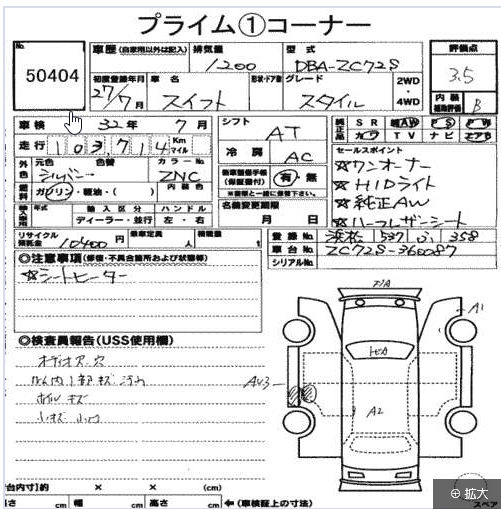 プライム①コーナー
No.
50404
車歴 (自家用以外は記入)
排気量
1200
型式
DBA-ZC72S
評価点
3.5
初度登録年月
27/7月
車名
スイフト
形状・ドア数
グレード
スタイル
2WD
・
4WD
内装
補助評価
B
車検
32年 7月
走行
103714
Km
マイル
シフト
AT
冷房
AC
純正品
SR
AW
PS
PW
カワ
TV
ナビ
エアB
セールスポイント
☆ワンオーナー
☆HIDライト
☆純正AW
☆ハーフレザーシート
外色
元色
シルバー
色替
カラーNo.
ZNC
燃料
ガソリン・軽油・( )
内装色
有・無
年式
輸入区分
ディーラー・並行
ハンドル
左・右
名義変更期限
月 日
リサイクル
預託金
10400円
乗車定員
人
積載量
登録No.
浜松 537 358
車台No.
ZC72S-360087
シリアルNo.
◎注意事項(修復・不具合箇所および状態等)
☆シートヒーター
◎検査員報告(USS使用欄)
オーディオアナ穴
ホイルキズ
A1
A2
台内寸】約 × × (cm)
長さ
幅 (cm)
高さ (cm)
←(車検証上の寸法)
拡大
スペア